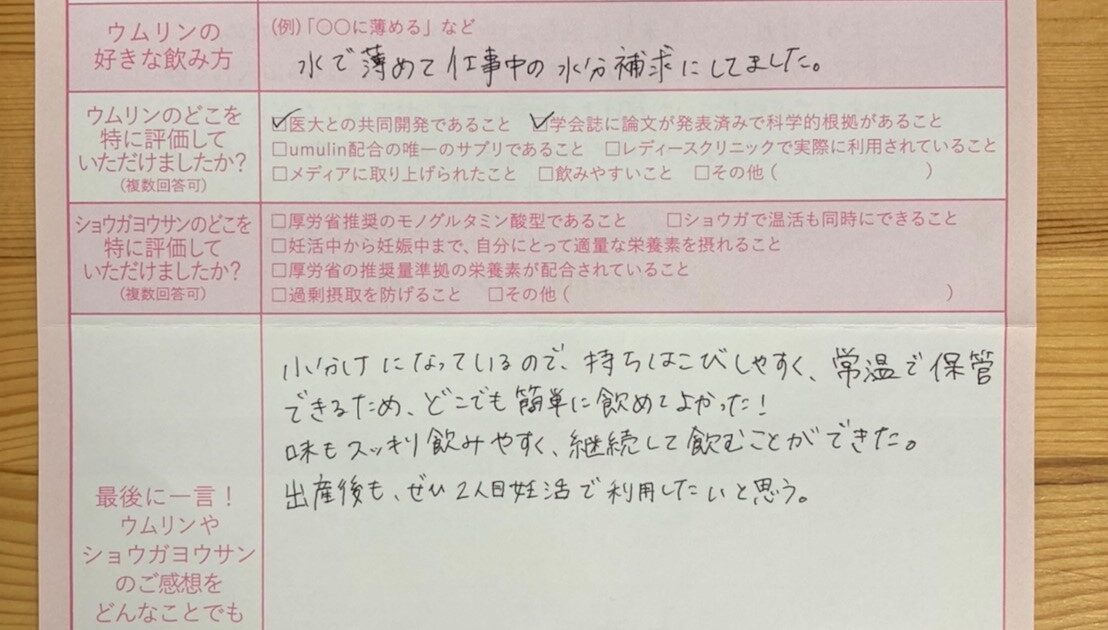 ウムリンの
好きな飲み方
(例)「〇〇に薄める」など
水で薄めて仕事中の水分補求にしてました。
ウムリンのどこを
特に評価して
いただけましたか?
(複数回答可)
☑医大との共同開発であること ☑学会誌に論文が発表済みで科学的根拠があること
□umulin配合の唯一のサプリであること □レディースクリニックで実際に利用されていること
□メディアに取り上げられたこと □飲みやすいこと □その他( )
ショウガヨウサンのどこを
特に評価して
いただけましたか?
(複数回答可)
□厚労省推奨のモノグルタミン酸型であること □ショウガで温活も同時にできること
□妊活中から妊娠中まで、自分にとって適量な栄養素を摂れること
□厚労省の推奨量準拠の栄養素が配合されていること
□過剰摂取を防げること □その他( )
最後に一言!
ウムリンや
ショウガヨウサン
のご感想を
どんなことでも
小分けになっているので、持ちはこびしやすく、常温で保管
できるため、どこでも簡単に飲めてよかった!
味もスッキリ飲みやすく、継続して飲むことができた。
出産後も、ぜひ2人目妊活で利用したいと思う。